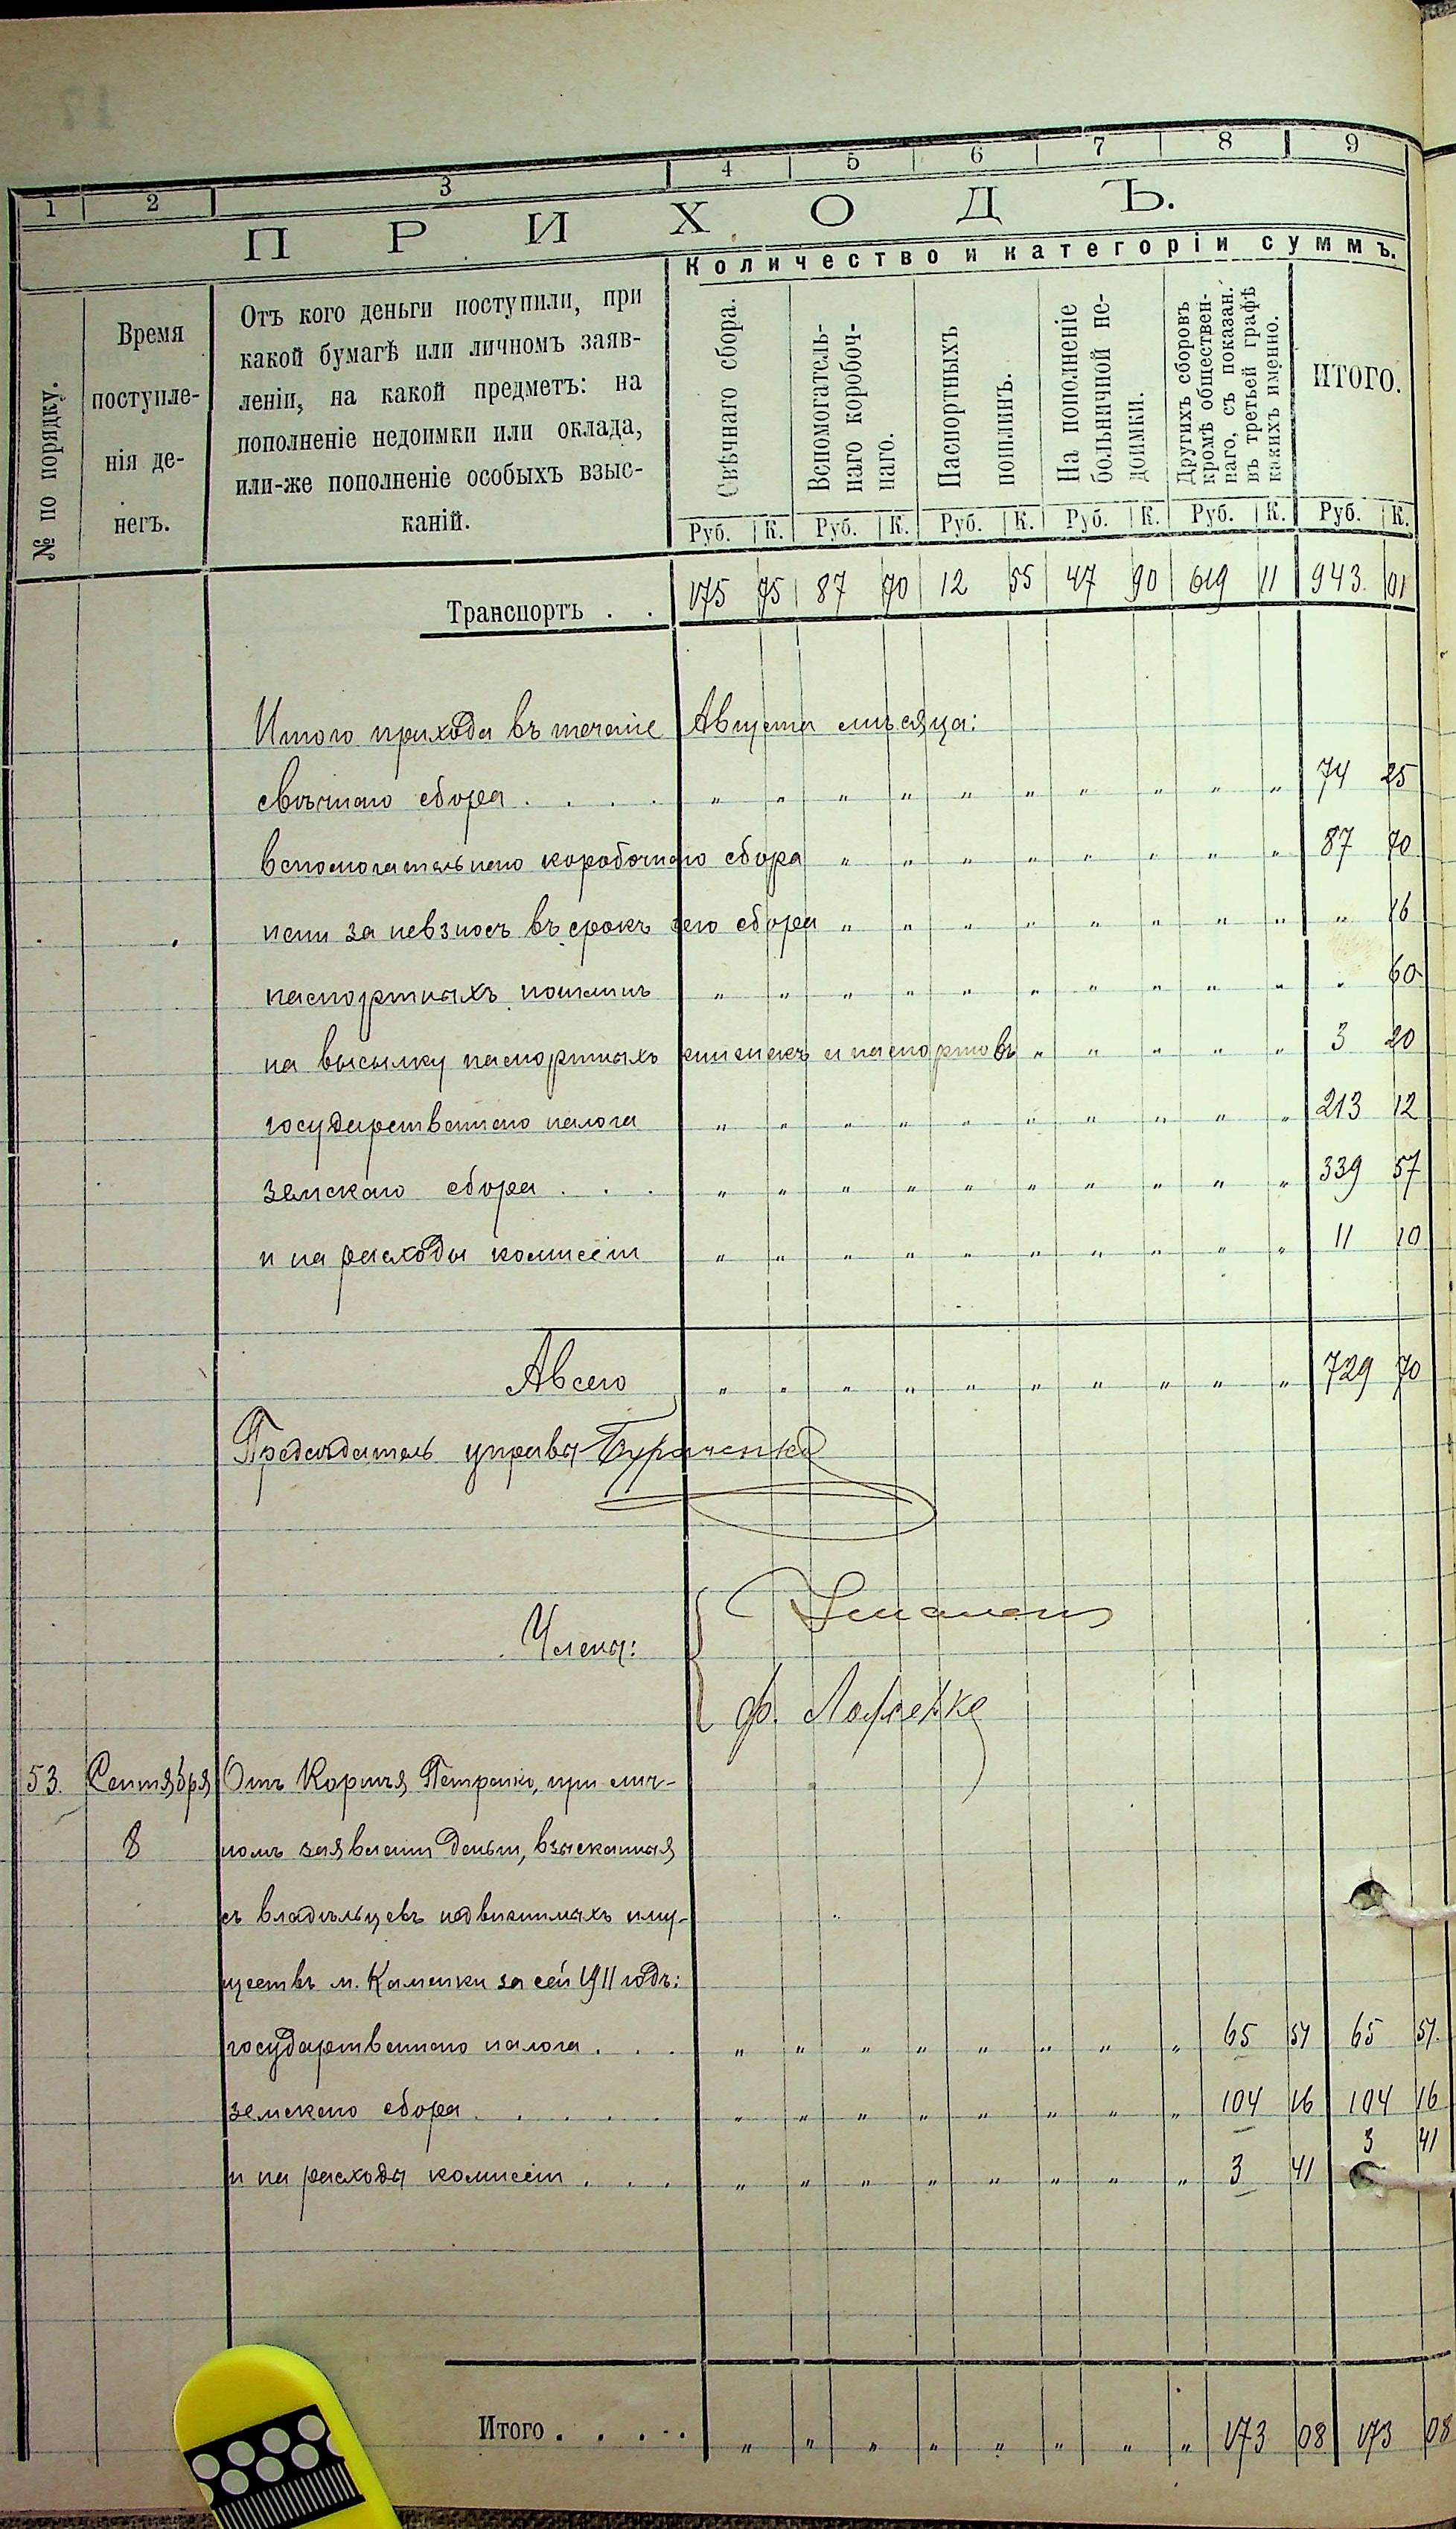 1 2 3 4 5 6 7 8 9
ПРИХОДЪ.
Количество и категоріи суммъ.
№ по порядку.
Время
поступле-
нія де-
негъ.
Отъ кого деньги поступили, при
какой бумагѣ или личномъ заяв-
леніи, на какой предметъ: на
пополненіе недоимки или оклада,
или-же пополненіе особыхъ взыс-
каній.
Свѣчнаго сбора.
Вспомогатель-
наго коробоч-
наго.
Паспортныхъ
пошлинъ.
На пополненіе
больничной не-
доимки.
Другихъ сборовъ
кромѣ обществен-
наго, съ показан.
въ третьей графѣ
какихъ именно.
ИТОГО.
Руб. К. Руб. К. Руб. К. Руб. К. Руб. К. Руб. К.
Транспортъ . . 175 75 87 70 12 55 47 90 619 11 943 01
Итого прихода въ теченіе Августа мѣсяца:
свѣчнаго сбора . . . . " " " " " " " " " " 74 25
вспомогательнаго коробочнаго сбора " " " " " " " " 87 70
пени за невзносъ въ срокъ сего сбора " " " " " " " " " 16
паспортныхъ пошлинъ " " " " " " " " " " " 60
на высылку паспортныхъ книжекъ и паспортовъ " " " " " 3 20
государственнаго налога " " " " " " " " " " 213 12
земскаго сбора . . . " " " " " " " " " " 339 57
и на расходы комиссіи " " " " " " " " " " 11 10
А всего " " " " " " " " " " 729 70
Предсѣдатель управы
Члены:
Ф.
53. Сентября Отъ Корнѣя Петренко, при лич-
8 номъ заявленіи деньги, взысканныя
съ владѣльцевъ недвижимыхъ иму-
ществъ м. Каменки за сей 1911 годъ:
государственнаго налога . . . " " " " " " " " 65 51 65 51.
земскаго сбора . . . . . " " " " " " " " 104 16 104 16
и на расходы комиссіи . . . " " " " " " " " 3 41 3 41
Итого . . . . . " " " " " " " " 173 08 173 08